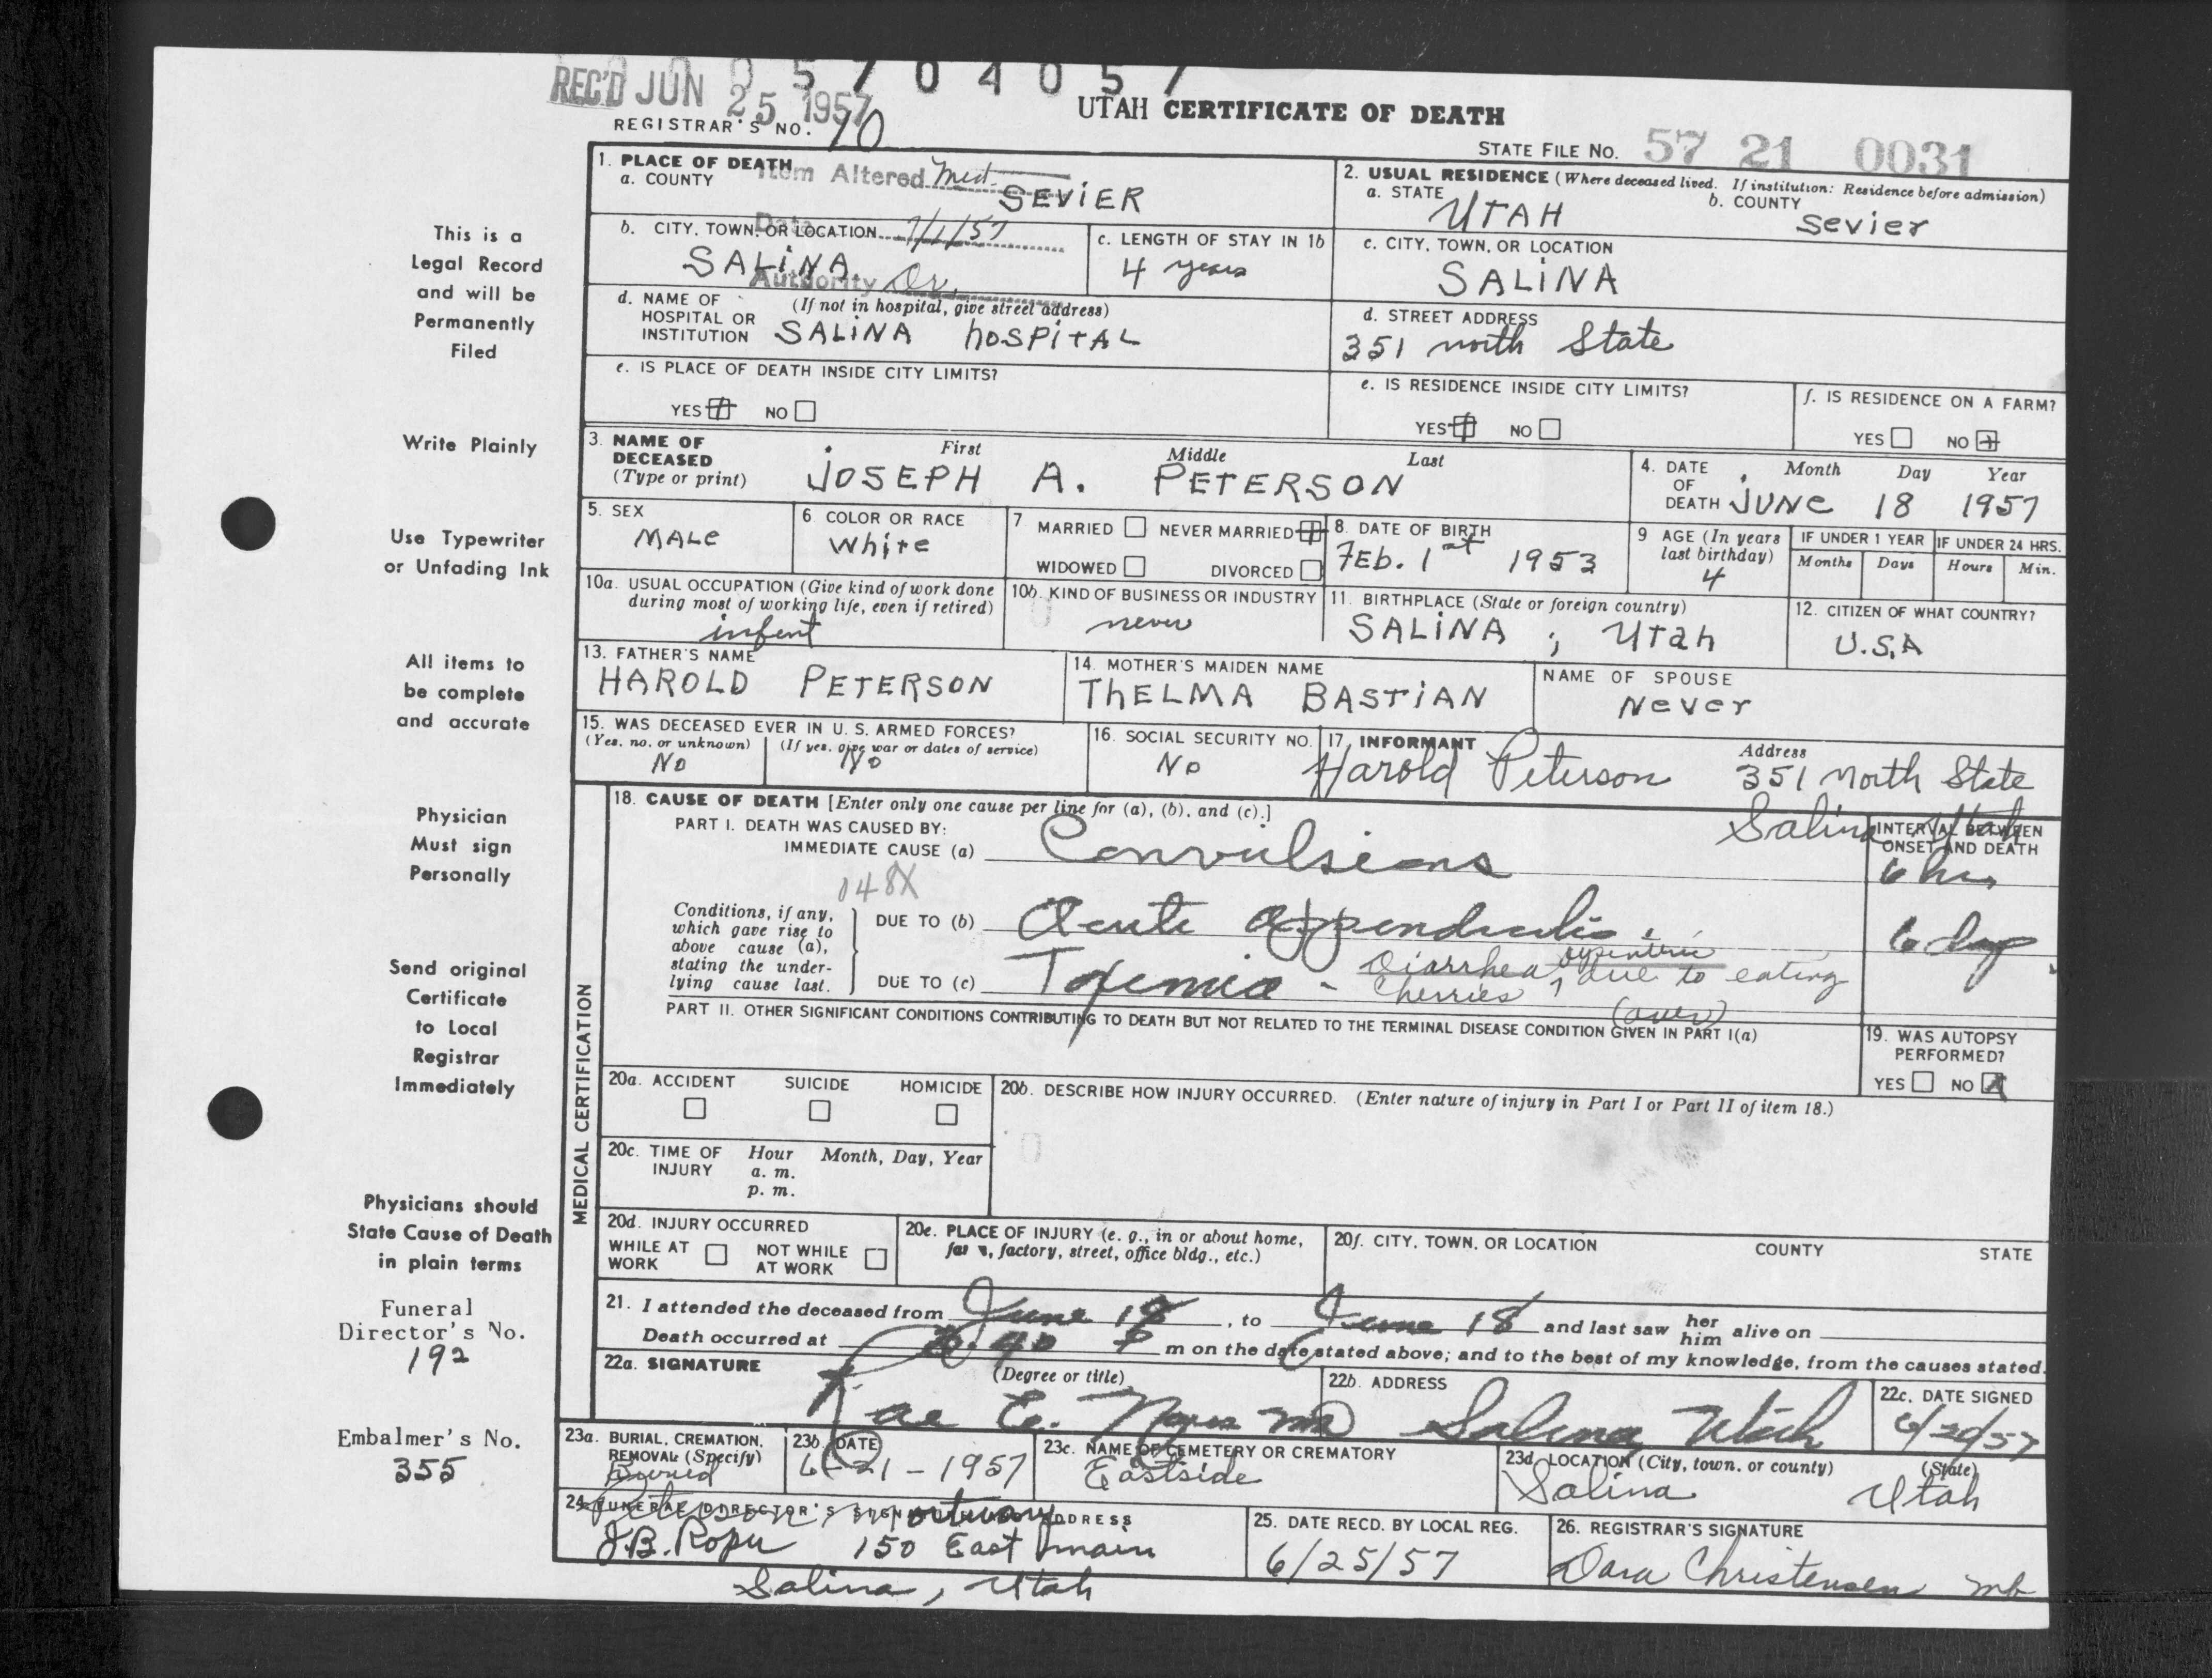 REC'D JUN 25 1957
5 7 0 4 0 5 7
UTAH CERTIFICATE OF DEATH
REGISTRAR'S NO. 70
STATE FILE NO. 57 21 0031
1. PLACE OF DEATH
a. COUNTY
Item Altered Med.
SEVIER
2. USUAL RESIDENCE (Where deceased lived. If institution: Residence before admission)
a. STATE UTAH
b. COUNTY Sevier
b. CITY, TOWN, OR LOCATION
Date 7/1/57
SALINA
Authority Dr.
c. LENGTH OF STAY IN 1b
4 years
c. CITY, TOWN, OR LOCATION
SALINA
d. NAME OF HOSPITAL OR INSTITUTION (If not in hospital, give street address)
SALINA hOSPITAL
d. STREET ADDRESS
351 north State
e. IS PLACE OF DEATH INSIDE CITY LIMITS?
YES NO
e. IS RESIDENCE INSIDE CITY LIMITS?
YES NO
f. IS RESIDENCE ON A FARM?
YES NO
3. NAME OF DECEASED (Type or print)
First Middle Last
JOSEPH A. PETERSON
4. DATE OF DEATH
Month Day Year
JUNE 18 1957
5. SEX
MALE
6 COLOR OR RACE
White
7 MARRIED NEVER MARRIED
WIDOWED DIVORCED
8. DATE OF BIRTH
Feb. 1st 1953
9 AGE (In years last birthday)
4
IF UNDER 1 YEAR
Months Days
IF UNDER 24 HRS.
Hours Min.
10a. USUAL OCCUPATION (Give kind of work done during most of working life, even if retired)
infent
10b. KIND OF BUSINESS OR INDUSTRY
never
11. BIRTHPLACE (State or foreign country)
SALINA, Utah
12. CITIZEN OF WHAT COUNTRY?
U.S.A
13. FATHER'S NAME
HAROLD PETERSON
14. MOTHER'S MAIDEN NAME
THELMA BASTIAN
NAME OF SPOUSE
Never
15. WAS DECEASED EVER IN U. S. ARMED FORCES?
(Yes, no, or unknown) (If yes, give war or dates of service)
No No
16. SOCIAL SECURITY NO.
No
17. INFORMANT
Harold Peterson
Address
351 North State
Salina Utah
18. CAUSE OF DEATH [Enter only one cause per line for (a), (b), and (c).]
PART I. DEATH WAS CAUSED BY:
IMMEDIATE CAUSE (a) Convulsions
INTERVAL BETWEEN ONSET AND DEATH
6 hrs
048X
Conditions, if any, which gave rise to above cause (a), stating the underlying cause last.
DUE TO (b) Acute appendicitis.
6 days
DUE TO (c) Toxemia - Diarrhea, due to eating
cherries
(over)
PART II. OTHER SIGNIFICANT CONDITIONS CONTRIBUTING TO DEATH BUT NOT RELATED TO THE TERMINAL DISEASE CONDITION GIVEN IN PART I(a)
19. WAS AUTOPSY PERFORMED?
YES NO X
20a. ACCIDENT SUICIDE HOMICIDE
20b. DESCRIBE HOW INJURY OCCURRED. (Enter nature of injury in Part I or Part II of item 18.)
20c. TIME OF INJURY
Hour Month, Day, Year
a. m.
p. m.
20d. INJURY OCCURRED
WHILE AT WORK
NOT WHILE AT WORK
20e. PLACE OF INJURY (e. g., in or about home, farm, factory, street, office bldg., etc.)
20f. CITY, TOWN, OR LOCATION COUNTY STATE
21. I attended the deceased from June 18, to June 18 and last saw her him alive on
Death occurred at P m on the date stated above; and to the best of my knowledge, from the causes stated.
22a. SIGNATURE (Degree or title)
Rae E. Noyes MD
22b. ADDRESS
Salina, Utah
22c. DATE SIGNED
6/20/57
23a. BURIAL, CREMATION, REMOVAL (Specify)
Buried
23b. DATE
6-21-1957
23c. NAME OF CEMETERY OR CREMATORY
Eastside
23d. LOCATION (City, town, or county) (State)
Salina Utah
24 FUNERAL DIRECTOR'S SIGNATURE ADDRESS
Peterson mortuary
J.B. Roper 150 East main
Salina, Utah
25. DATE RECD. BY LOCAL REG.
6/25/57
26. REGISTRAR'S SIGNATURE
Dara Christensen mb
MEDICAL CERTIFICATION
This is a
Legal Record
and will be
Permanently
Filed
Write Plainly
Use Typewriter
or Unfading Ink
All items to
be complete
and accurate
Physician
Must sign
Personally
Send original
Certificate
to Local
Registrar
Immediately
Physicians should
State Cause of Death
in plain terms
Funeral
Director's No.
192
Embalmer's No.
355